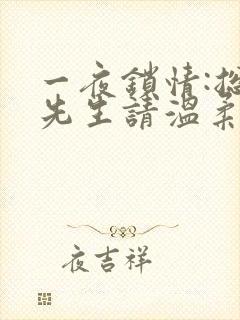 一夜鎖情:
先生請溫柔
夜吉祥